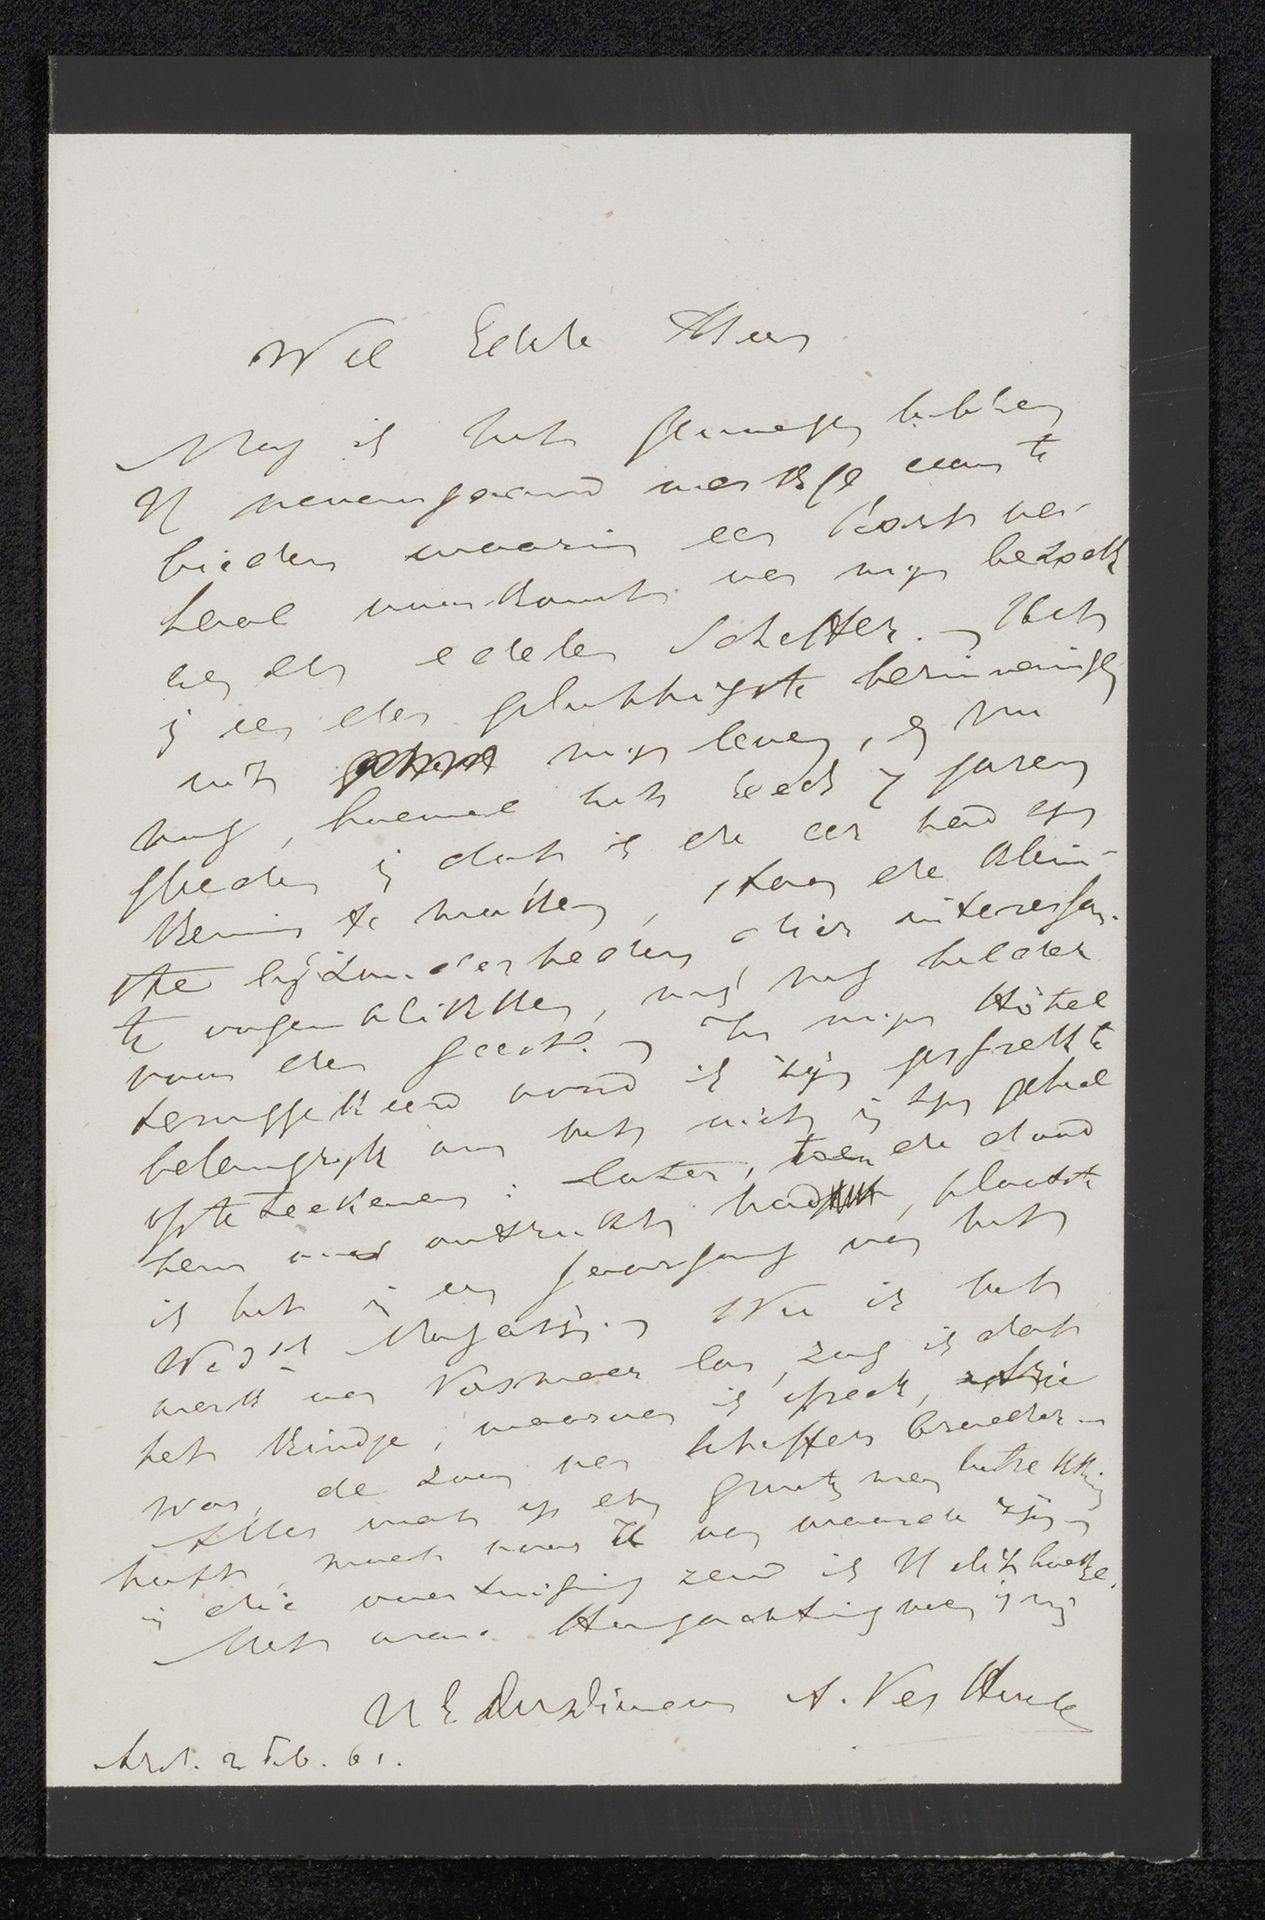 Wel Edele Heer
Mag ik het genoegen hebben
U nevensgaand werkje aan te
bieden waarin een kort ver-
haal voorkomt van mijn bezoek
bij den edelen Scheffer. – Het
is een der gelukkigste herinneringen
uit mijn leven, en nu
nog, hoewel het reeds 7 jaren
geleden is dat ik de eer had zijn
kennis te maken, staan de klein-
ste bijzonderheden dier interessan-
te oogenblikken, mij nog helder
voor den geest. – In mijn Hôtel
teruggekeerd vond ik zijn gesprek te
belangrijk om het niet in zijn geheel
op te teekenen: later, toen de dood
hem ons ontrukt had, plaatste
ik het in een jaargang van het
Magazijn. – Nu ik het
werk van Vosmaer las, zag ik dat
het kindje, waarvan ik spreek,
was, de zoon van Scheffers broeder. –
Alles wat op een groot man betrekking
heeft, moet voor U van waarde zijn –
in die overtuiging zend ik U dit boekje.
Met ware Hoogachting noem ik mij
UEd Dienstw. A. Ver Huell
Arn. 2 Feb. 61.